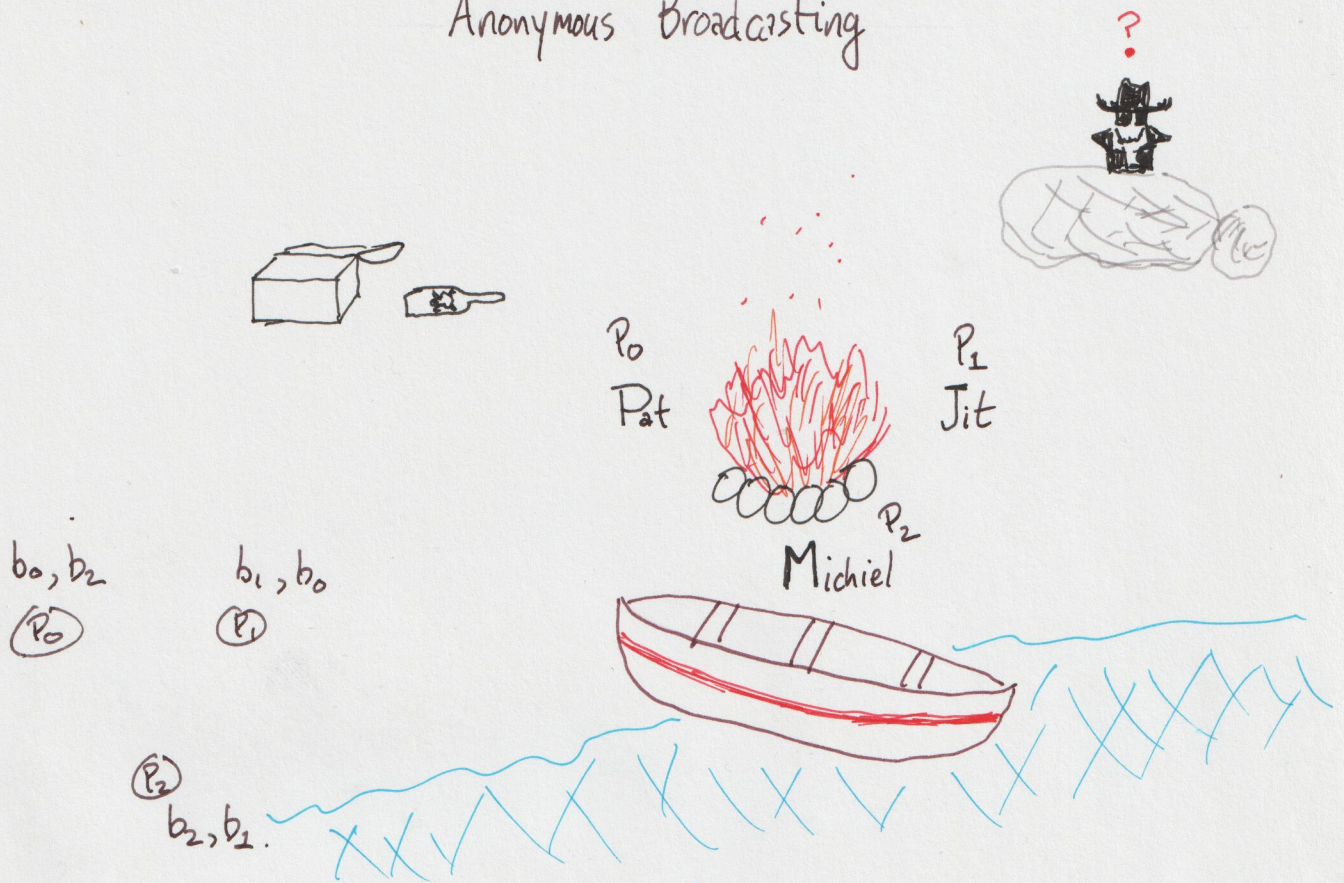 Anonymous Broadcasting
?
P0
Pat
P1
Jit
P2
Michiel
b0, b2
P0
b1, b0
P1
P2
b2, b1.